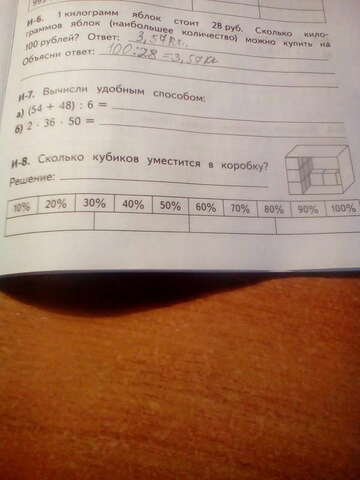 И-6. 1 килограмм яблок стоит 28 руб. Сколько кило-
граммов яблок (наибольшее количество) можно купить на
100 рублей? Ответ: 3,57кг.
Объясни ответ: 100:28=3,57кг
И-7. Вычисли удобным способом:
а) (54 + 48) : 6 =
б) 2 · 36 · 50 =
И-8. Сколько кубиков уместится в коробку?
Решение:
10% 20% 30% 40% 50% 60% 70% 80% 90% 100%